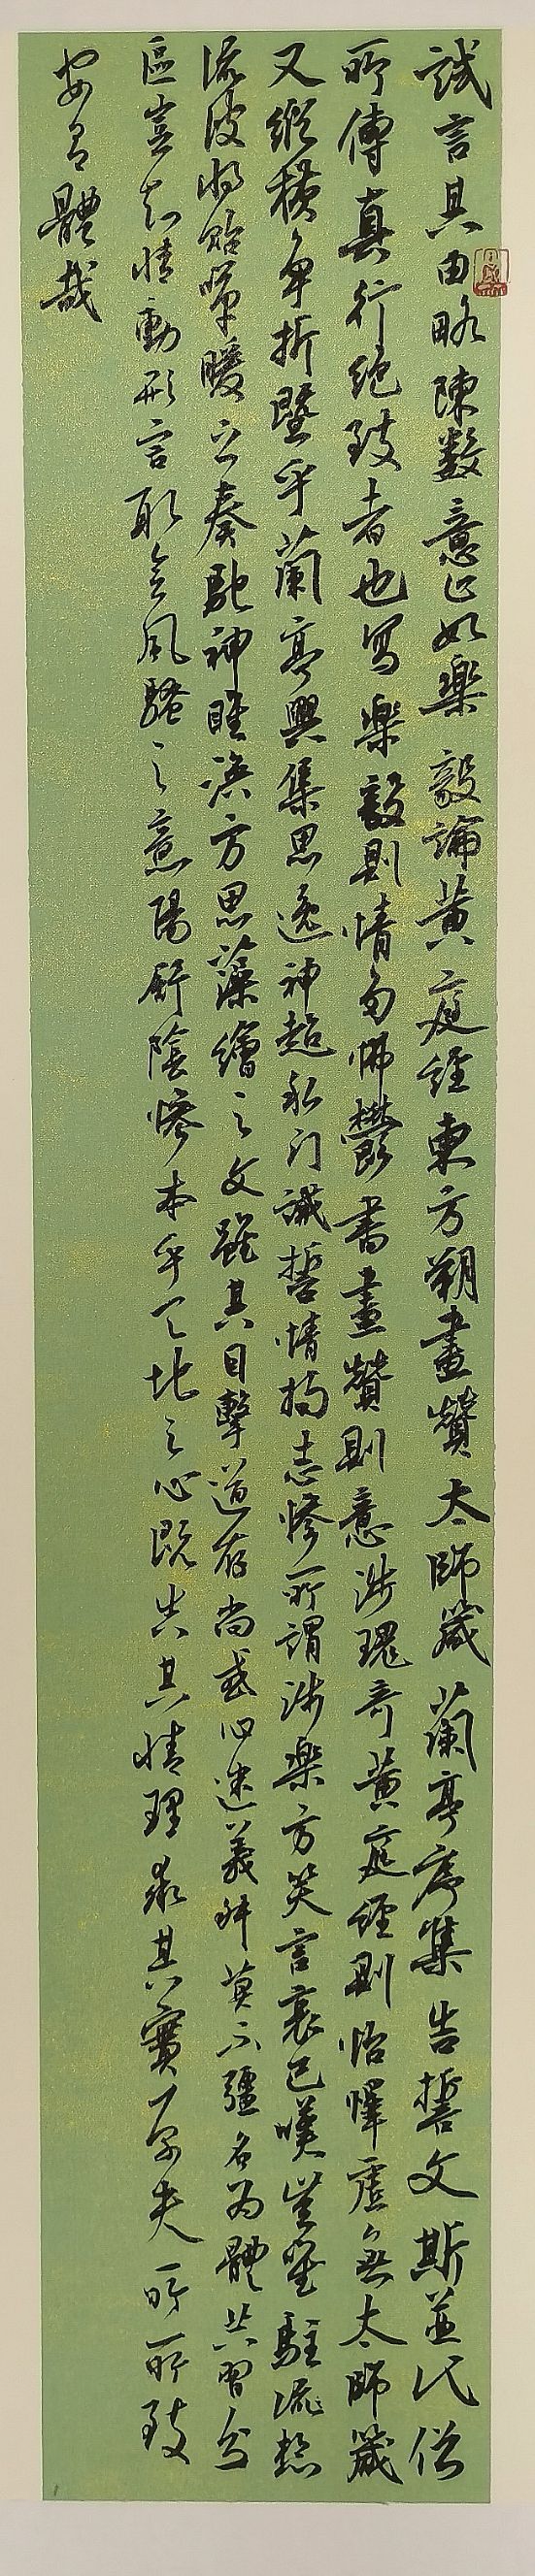 試言其由略陳数意止如樂毅論黄庭經東方朔畫贊太師箴蘭亭序集告誓文斯並代俗
所傳真行絶致者也写樂毅則情多怫鬱書畫贊則意涉瑰奇黄庭經則怡懌虛無太師箴
又縱横争折暨乎蘭亭興集思逸神超私门誡誓情拘志慘所謂涉樂方笑言哀已嘆豈惟駐流想
流波将貽嘽嗳之奏馳神睢渙方思藻繪之文雖其目擊道存尚或心迷義舛莫不彊名為體共習分
區豈知情動形言取會風騷之意陽舒陰慘本乎天地之心既失其情理乖其實原夫所致
安有體哉